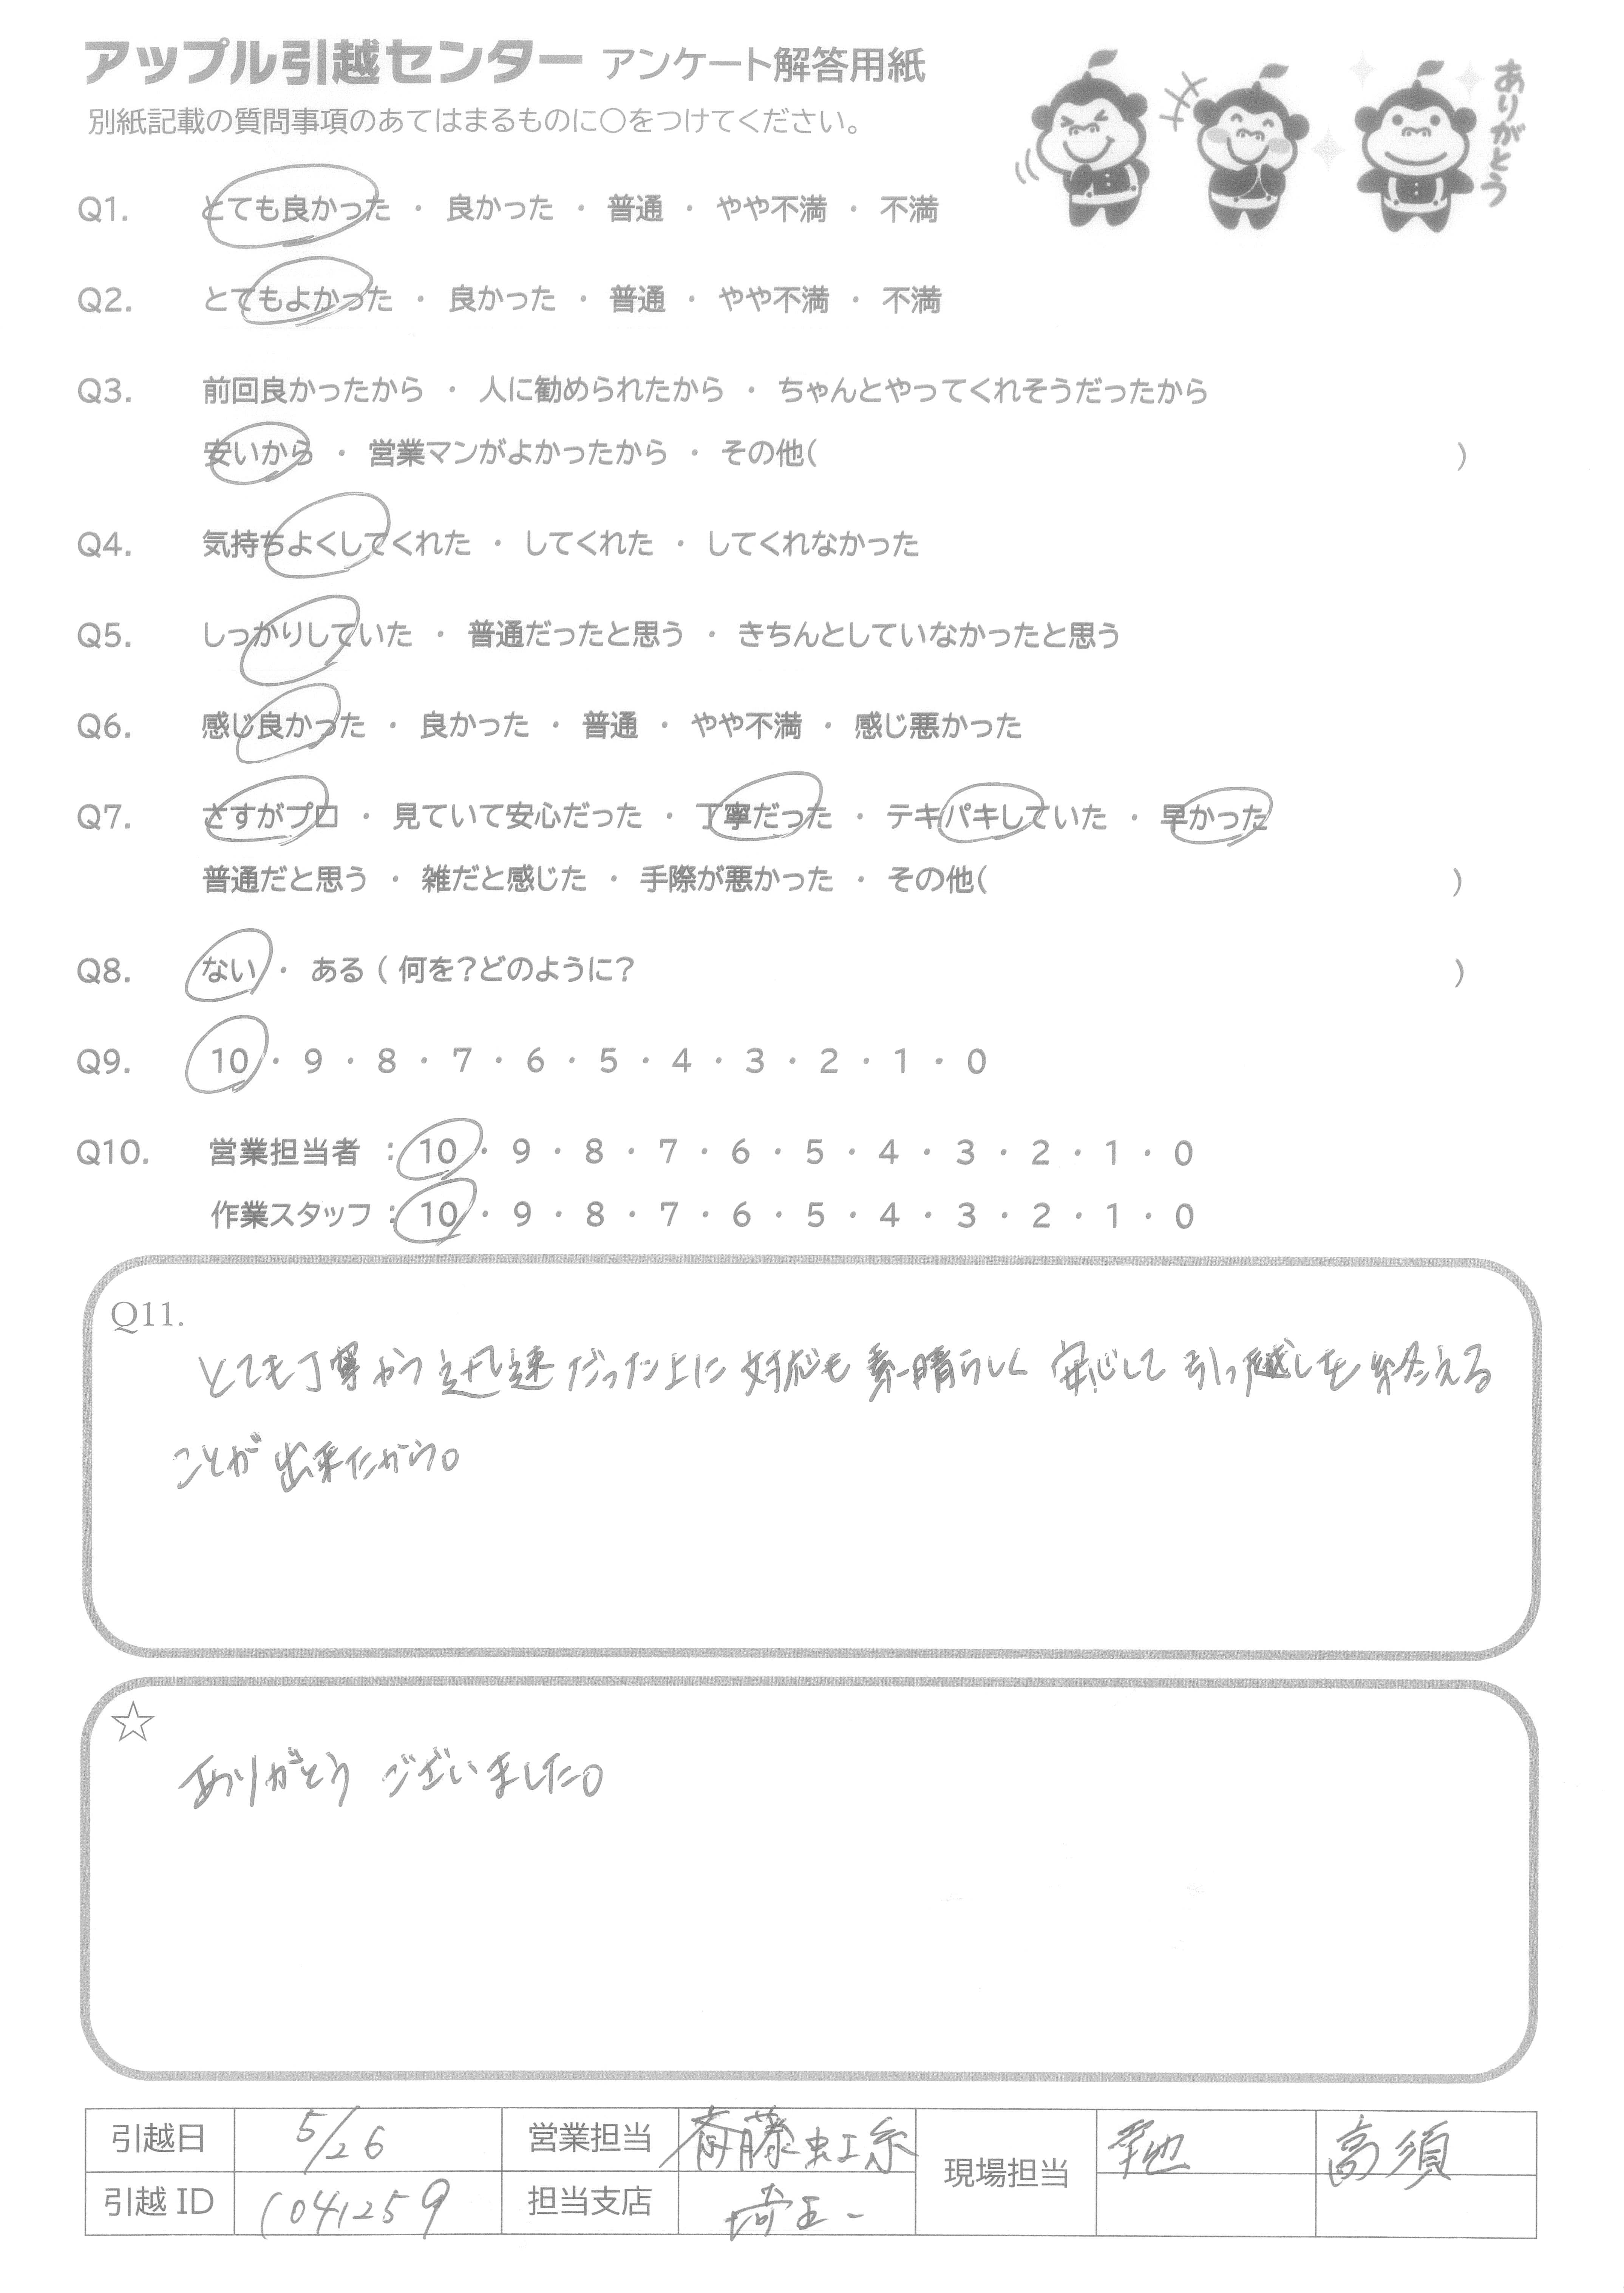 アップル引越センター アンケート解答用紙
別紙記載の質問事項のあてはまるものに○をつけてください。
ありがとう
Q1. とても良かった ・ 良かった ・ 普通 ・ やや不満 ・ 不満
Q2. とてもよかった ・ 良かった ・ 普通 ・ やや不満 ・ 不満
Q3. 前回良かったから ・ 人に勧められたから ・ ちゃんとやってくれそうだったから
安いから ・ 営業マンがよかったから ・ その他( )
Q4. 気持ちよくしてくれた ・ してくれた ・ してくれなかった
Q5. しっかりしていた ・ 普通だったと思う ・ きちんとしていなかったと思う
Q6. 感じ良かった ・ 良かった ・ 普通 ・ やや不満 ・ 感じ悪かった
Q7. さすがプロ ・ 見ていて安心だった ・ 丁寧だった ・ テキパキしていた ・ 早かった
普通だと思う ・ 雑だと感じた ・ 手際が悪かった ・ その他( )
Q8. ない ・ ある ( 何を?どのように? )
Q9. 10 ・ 9 ・ 8 ・ 7 ・ 6 ・ 5 ・ 4 ・ 3 ・ 2 ・ 1 ・ 0
Q10. 営業担当者 : 10 ・ 9 ・ 8 ・ 7 ・ 6 ・ 5 ・ 4 ・ 3 ・ 2 ・ 1 ・ 0
作業スタッフ : 10 ・ 9 ・ 8 ・ 7 ・ 6 ・ 5 ・ 4 ・ 3 ・ 2 ・ 1 ・ 0
Q11.
とても丁寧かつ迅速だった上に対応も素晴らしく安心して引っ越しを終える
ことが出来たから。
☆
ありがとうございました。
引越日 5/26 営業担当 斎藤虹糸 現場担当 高須
引越ID 1041259 担当支店 埼玉一